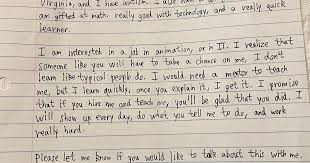 Virginia, and I have autism. I also
am gifted at math, really good with technology, and a really quick
learner.
I am interested in a job in animation, or in IT. I realize that
someone like you will have to take a chance on me, I don't
learn like typical people do. I would need a mentor to teach
me, but I learn quickly, once you explain it, I get it. I promise
that if you hire me and teach me, you'll be glad that you did. I
will show up every day, do what you tell me to do, and work
really hard.
Please let me know if you would like to talk about this with me.